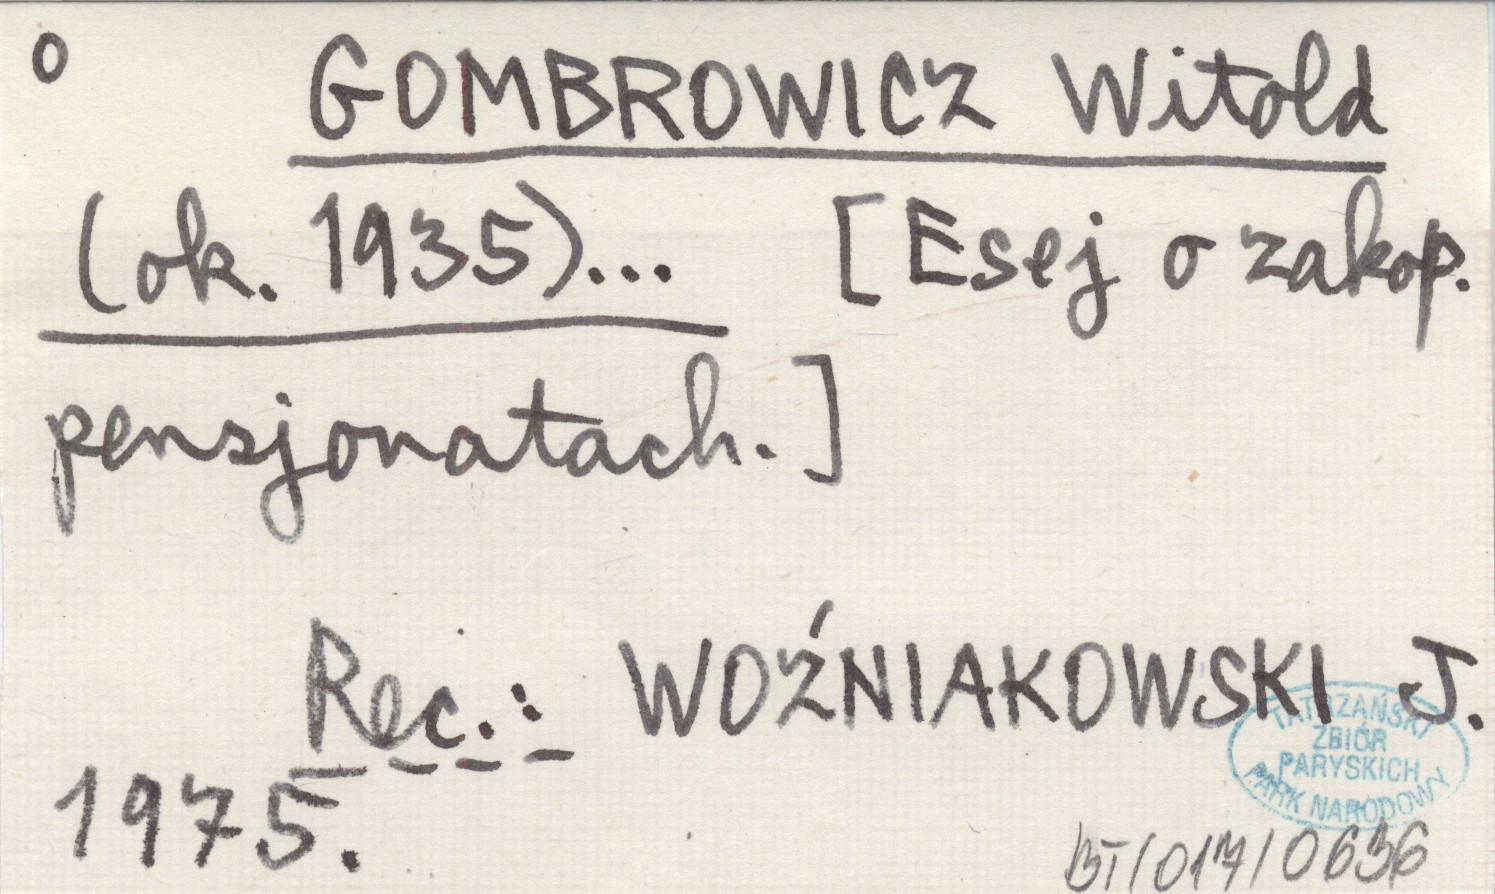 o GOMBROWICZ Witold
(ok. 1935)... [Esej o zakop.
pensjonatach.]
Rec.: WOŹNIAKOWSKI J.
1975.
TATRZAŃSKI
ZBIÓR
PARYSKICH
PARK NARODOWY
BT/017/0656